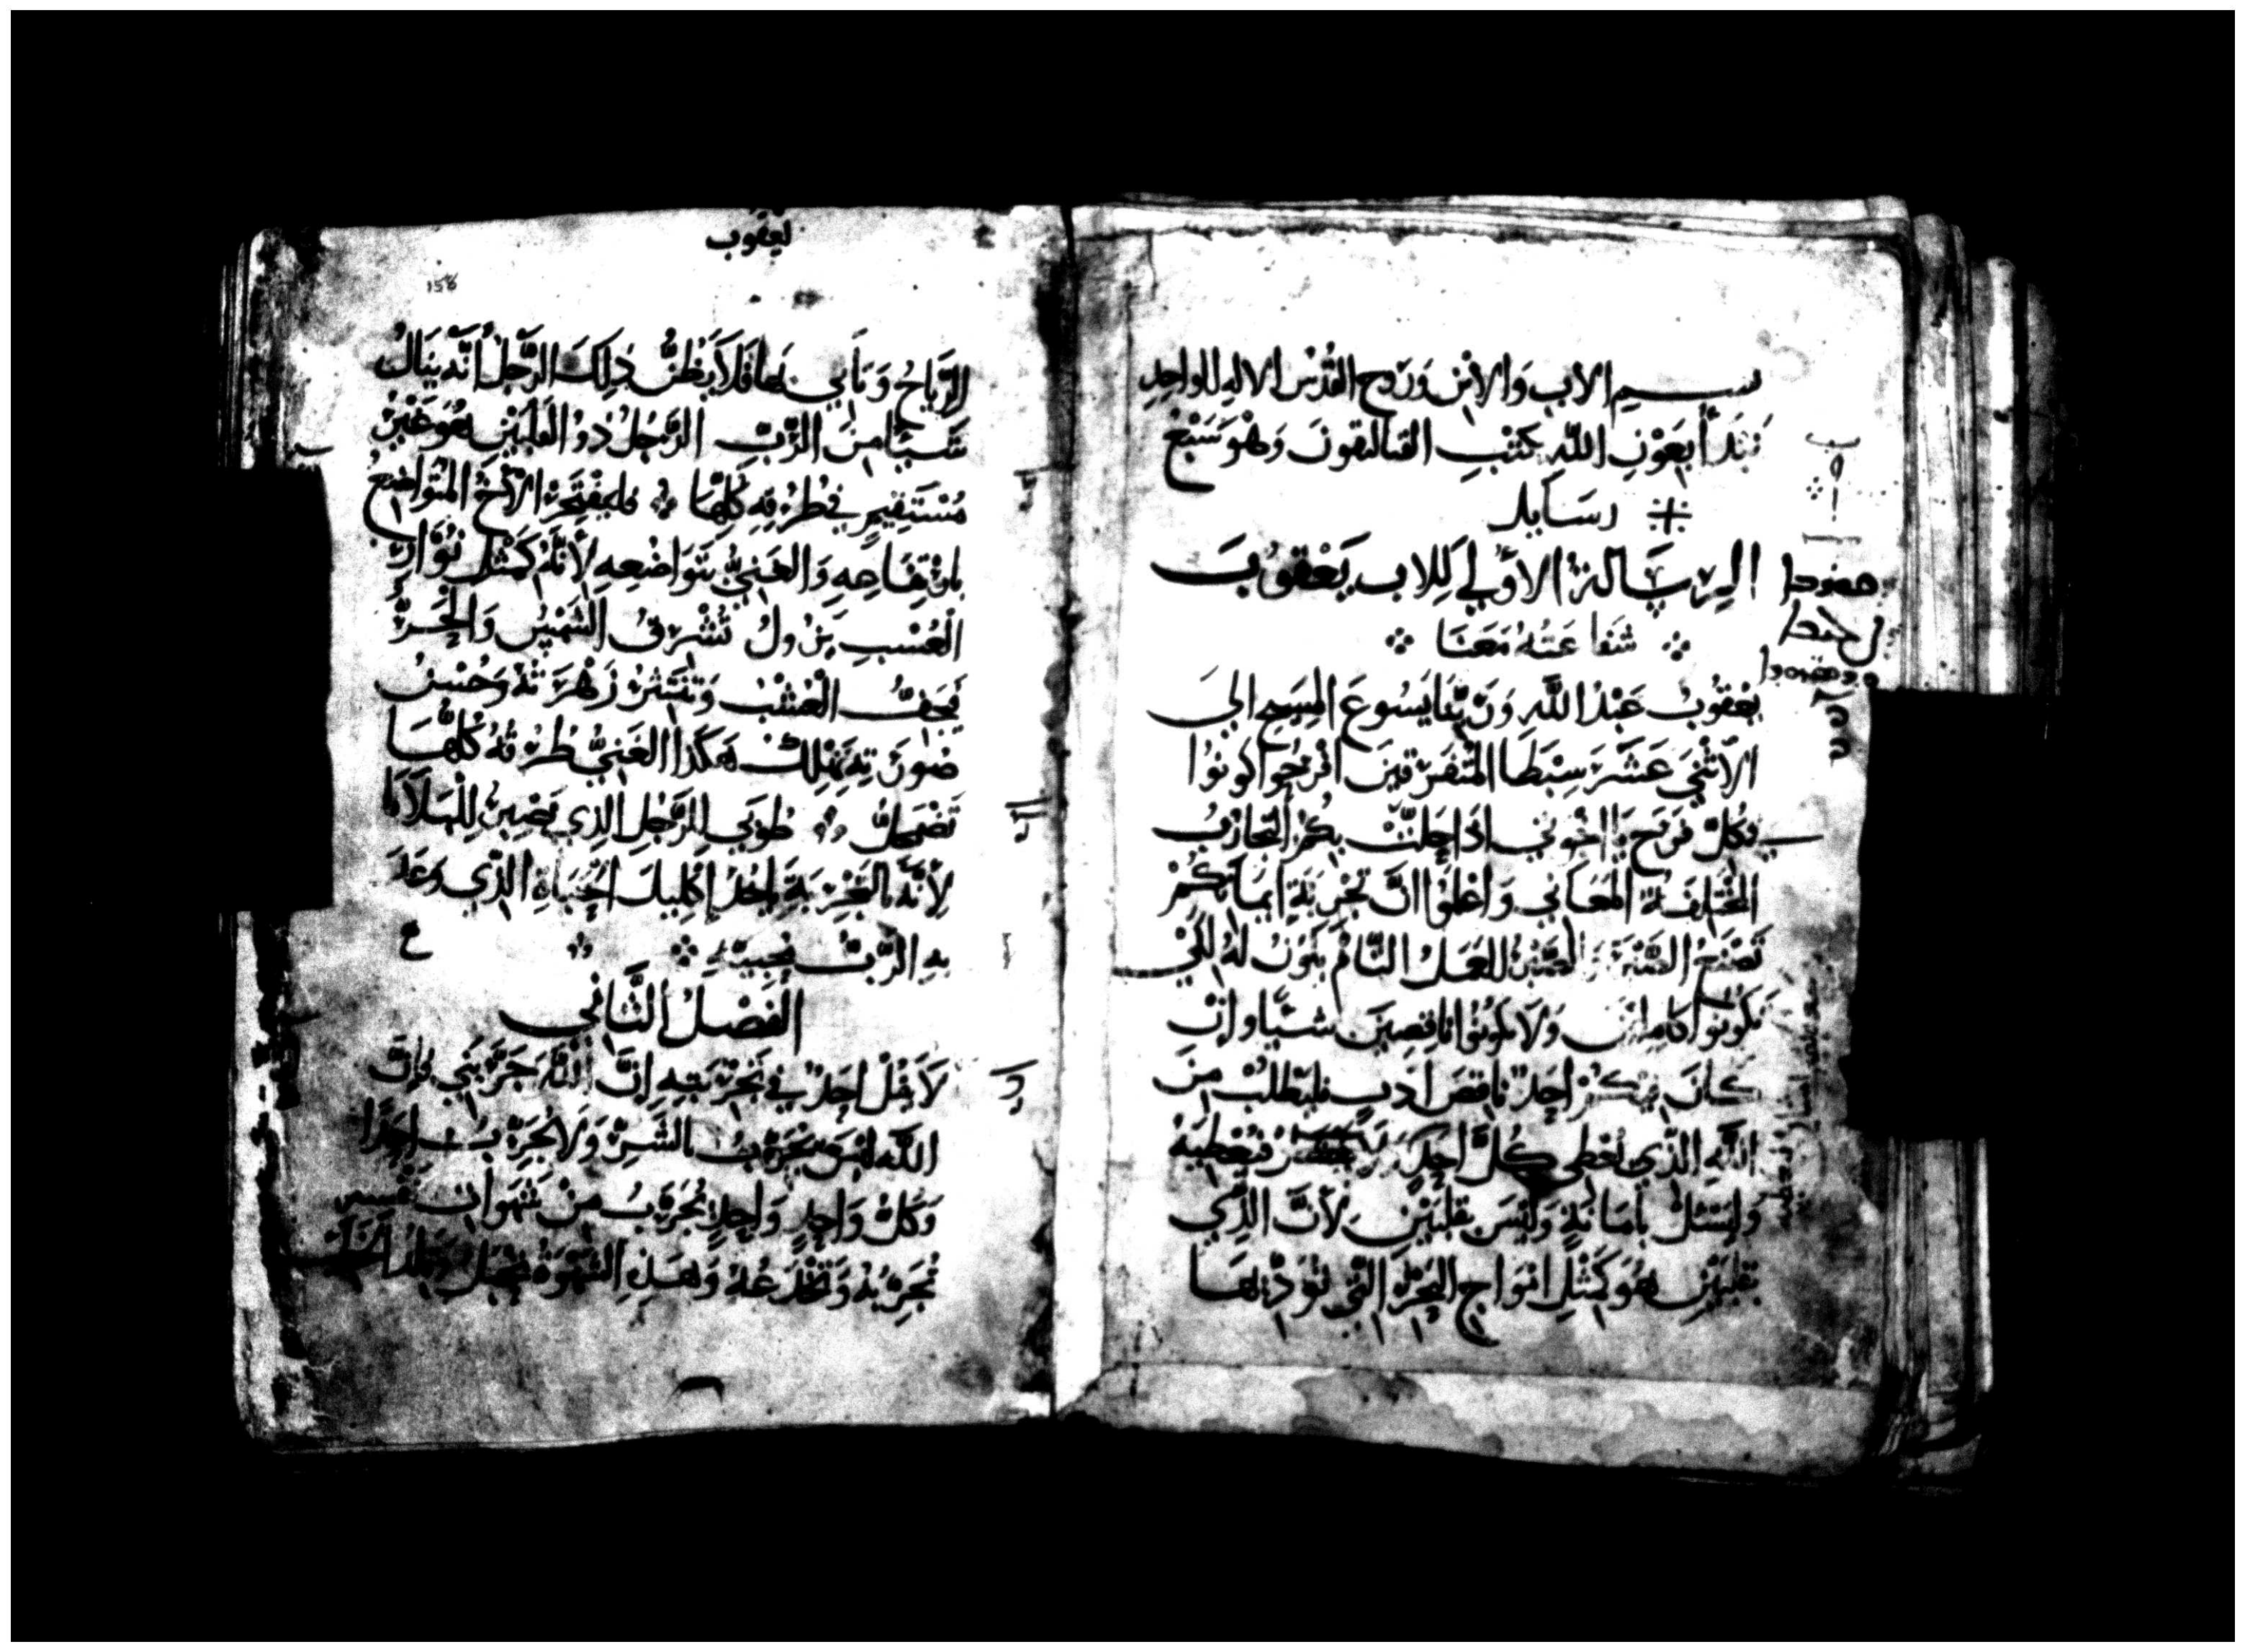 بسم الاب والابن وروح القدس الاله الواحد
نبتدأ بعون الله كتب القتاليقون وهو سبع
رسايل
الرسالة الأولي للاب يعقوب
شفاعته معنا
يعقوب عبد الله وربنا يسوع المسيح الي
الاثني عشر سبطا المتفرقين افرحوا كونوا
بكل فرح يا اخوتي اذا حلت بكم التجارب
المختلفة المعاني واعلموا ان تجربة ايمانكم
تصنع الصبر والصبر للعمل التام يكون له لكي
تكونوا كاملين ولا تكونوا ناقصين شيا وان
كان منكم احد ناقص ادب فليطلب من
الله الذي يعطي كل احد فيعطيه
وليسئل بامانة وليس بقلبين لأن الذي
بقلبين هو كمثل امواج البحر التي تؤديها
يعقوب
156
الرياح وتأتي بها فلا يظن ذلك الرجل أنه ينال
شيا من الرب الرجل ذو القلبين هو غير
مستقيم في طرقه كلها فليفتخر الأخ المتواضع
بارتفاعه والغني بتواضعه لأنه كمثل نوار
العشب يزول تشرق الشمس والحر
فيجف العشب وتنتثر زهرته وحسن
صورته تهلك هكذا الغني طرقه كلها
تضمحل طوبي للرجل الذي يصبر للبلايا
لأنه بالتجربة ياخذ إكليل الحياة الذي وعد
به الرب محبيه
الفصل الثاني
لا يقل احد في تجربته إن الله جربني فإن
الله ليس يجرب بالشر ولا يجرب احدا
وكل واحد واحد يجرب من شهوات نفسه
تجربه وتخدعه وهذه الشهوة تحبل وتلد الخطية